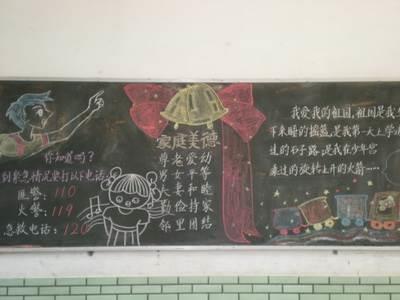 你知道吗?
到紧急情况要打以下电话
匪警:110
火警:119
急救电话:120
家庭美德
尊老爱幼
男女平等
夫妻和睦
勤俭持家
邻里团结
我爱我的祖国,祖国是我
下来睡的摇篮,是我第一天上学
过的石子路,是我在少年宫
乘过的旋转上升的火箭……